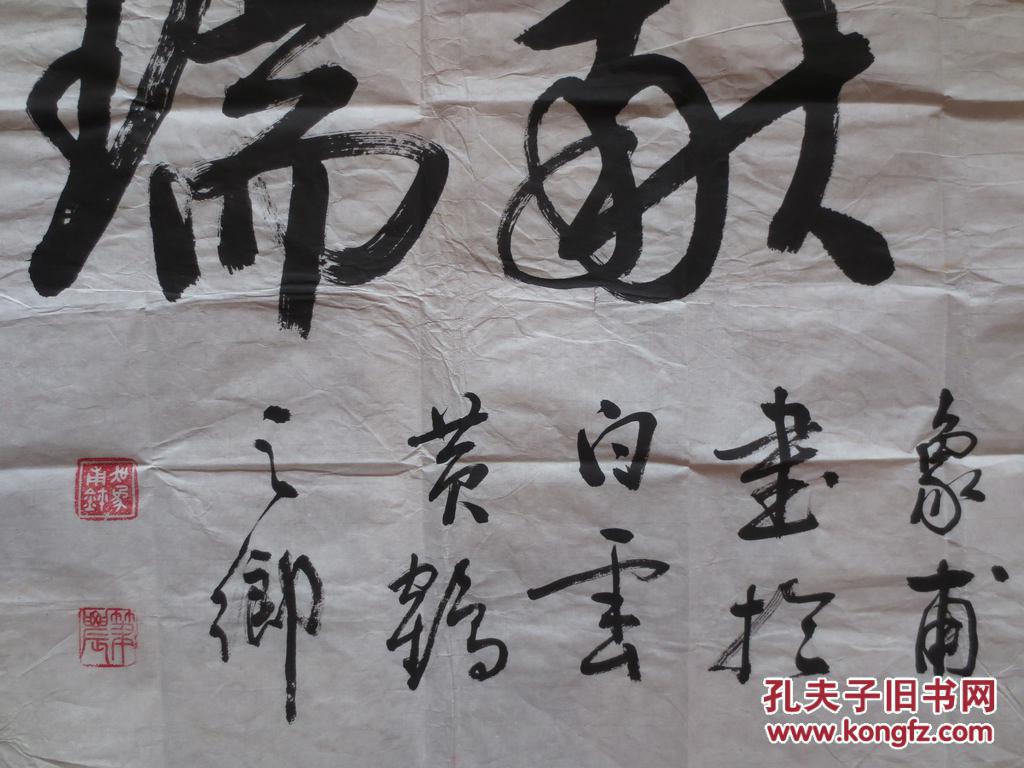 献瑞
象甫
書於
白雲
黄鶴
之鄉
孔夫子旧书网
www.kongfz.com